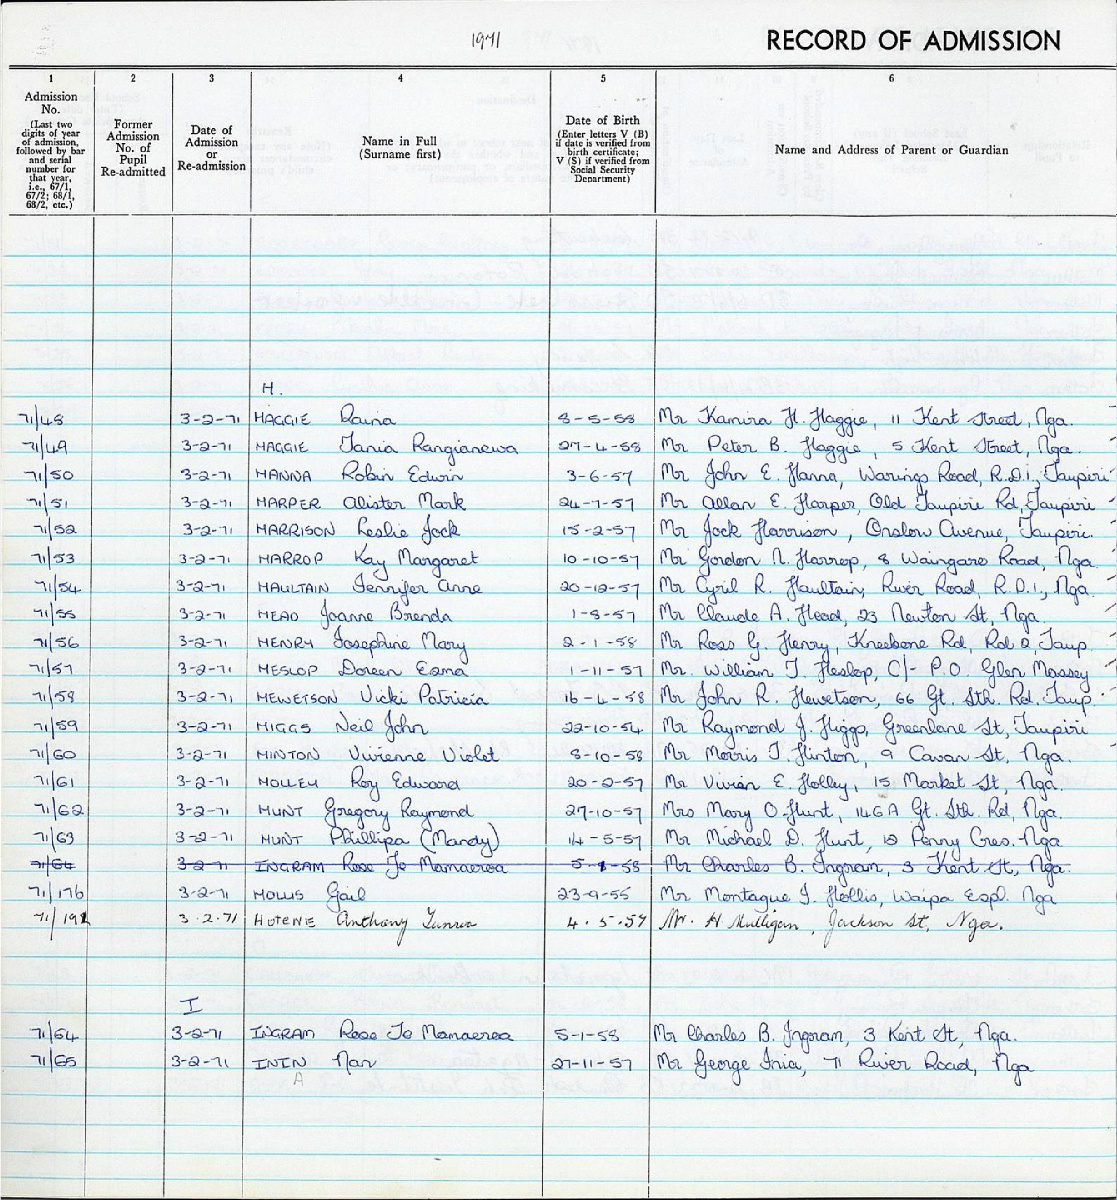 1971
RECORD OF ADMISSION
1 2 3 4 5 6
Admission No. (Last two digits of year of admission, followed by bar and serial number for that year, i.e., 67/1, 67/2; 68/1, 68/2, etc.)
Former Admission No. of Pupil Re-admitted
Date of Admission or Re-admission
Name in Full (Surname first)
Date of Birth (Enter letters V (B) if date is verified from birth certificate; V (S) if verified from Social Security Department)
Name and Address of Parent or Guardian
H.
71/48 3-2-71 HAGGIE Daina 8-5-58 Mr Kamira H. Haggie, 11 Kent Street, Nga.
71/49 3-2-71 HAGGIE Tania Rangianewa 27-4-58 Mr Peter B. Haggie, 5 Kent Street, Nga.
71/50 3-2-71 HANNA Robin Edwin 3-6-57 Mr John E. Hanna, Warings Road, R.D.1, Taupiri
71/51 3-2-71 HARPER Alister Mark 24-7-57 Mr Allan E. Harper, Old Taupiri Rd, Taupiri
71/52 3-2-71 HARRISON Leslie Jock 15-2-57 Mr Jock Harrison, Onslow Avenue, Taupiri.
71/53 3-2-71 HARROP Kay Margaret 10-10-57 Mr Gordon N. Harrop, 8 Waingaro Road, Nga.
71/54 3-2-71 HAULTAIN Jennifer Anne 20-12-57 Mr Cyril R. Haultain, River Road, R.D.1., Nga.
71/55 3-2-71 HEAD Joanne Brenda 1-8-57 Mr Claude A. Head, 23 Newton St, Nga.
71/56 3-2-71 HENRY Josephine Mary 2-1-58 Mr Ross G. Henry, Kneebone Rd, Rd 2 Taup.
71/57 3-2-71 HESLOP Doreen Esma 1-11-57 Mr. William T. Heslop, C/- P.O. Glen Massey
71/58 3-2-71 HEWETSON Vicki Patricia 16-4-58 Mr John R. Hewetson, 66 Gt. Sth. Rd. Taup.
71/59 3-2-71 HIGGS Neil John 22-10-54 Mr Raymond J. Higgs, Greenlane St, Taupiri
71/60 3-2-71 HINTON Vivienne Violet 8-10-58 Mr Morris T. Hinton, 9 Cavan St, Nga.
71/61 3-2-71 HOLLEY Roy Edward 20-2-57 Mr Vivian E. Holley, 15 Market St, Nga.
71/62 3-2-71 HUNT Gregory Raymond 27-10-57 Mrs Mary O. Hunt, 146A Gt. Sth. Rd, Nga.
71/63 3-2-71 HUNT Phillipa (Mandy) 14-5-57 Mr Michael D. Hunt, Penny Cres. Nga
71/64 3-2-71 INGRAM Rose Te Mamaeroa 5-1-58 Mr Charles B. Ingram, 3 Kent St, Nga.
71/176 3-2-71 HOLLIS Gail 23-9-55 Mr Montague I. Hollis, Waipa Espl. Nga
71/192 3.2.71 HOTENE Anthony 4.5.57 Mr. H Mulligan, Jackson St, Nga.
I
71/64 3-2-71 INGRAM Rose Te Mamaeroa 5-1-58 Mr Charles B. Ingram, 3 Kent St, Nga.
71/65 3-2-71 ININ Nair 27-11-57 Mr George Inia, 71 River Road, Nga
A